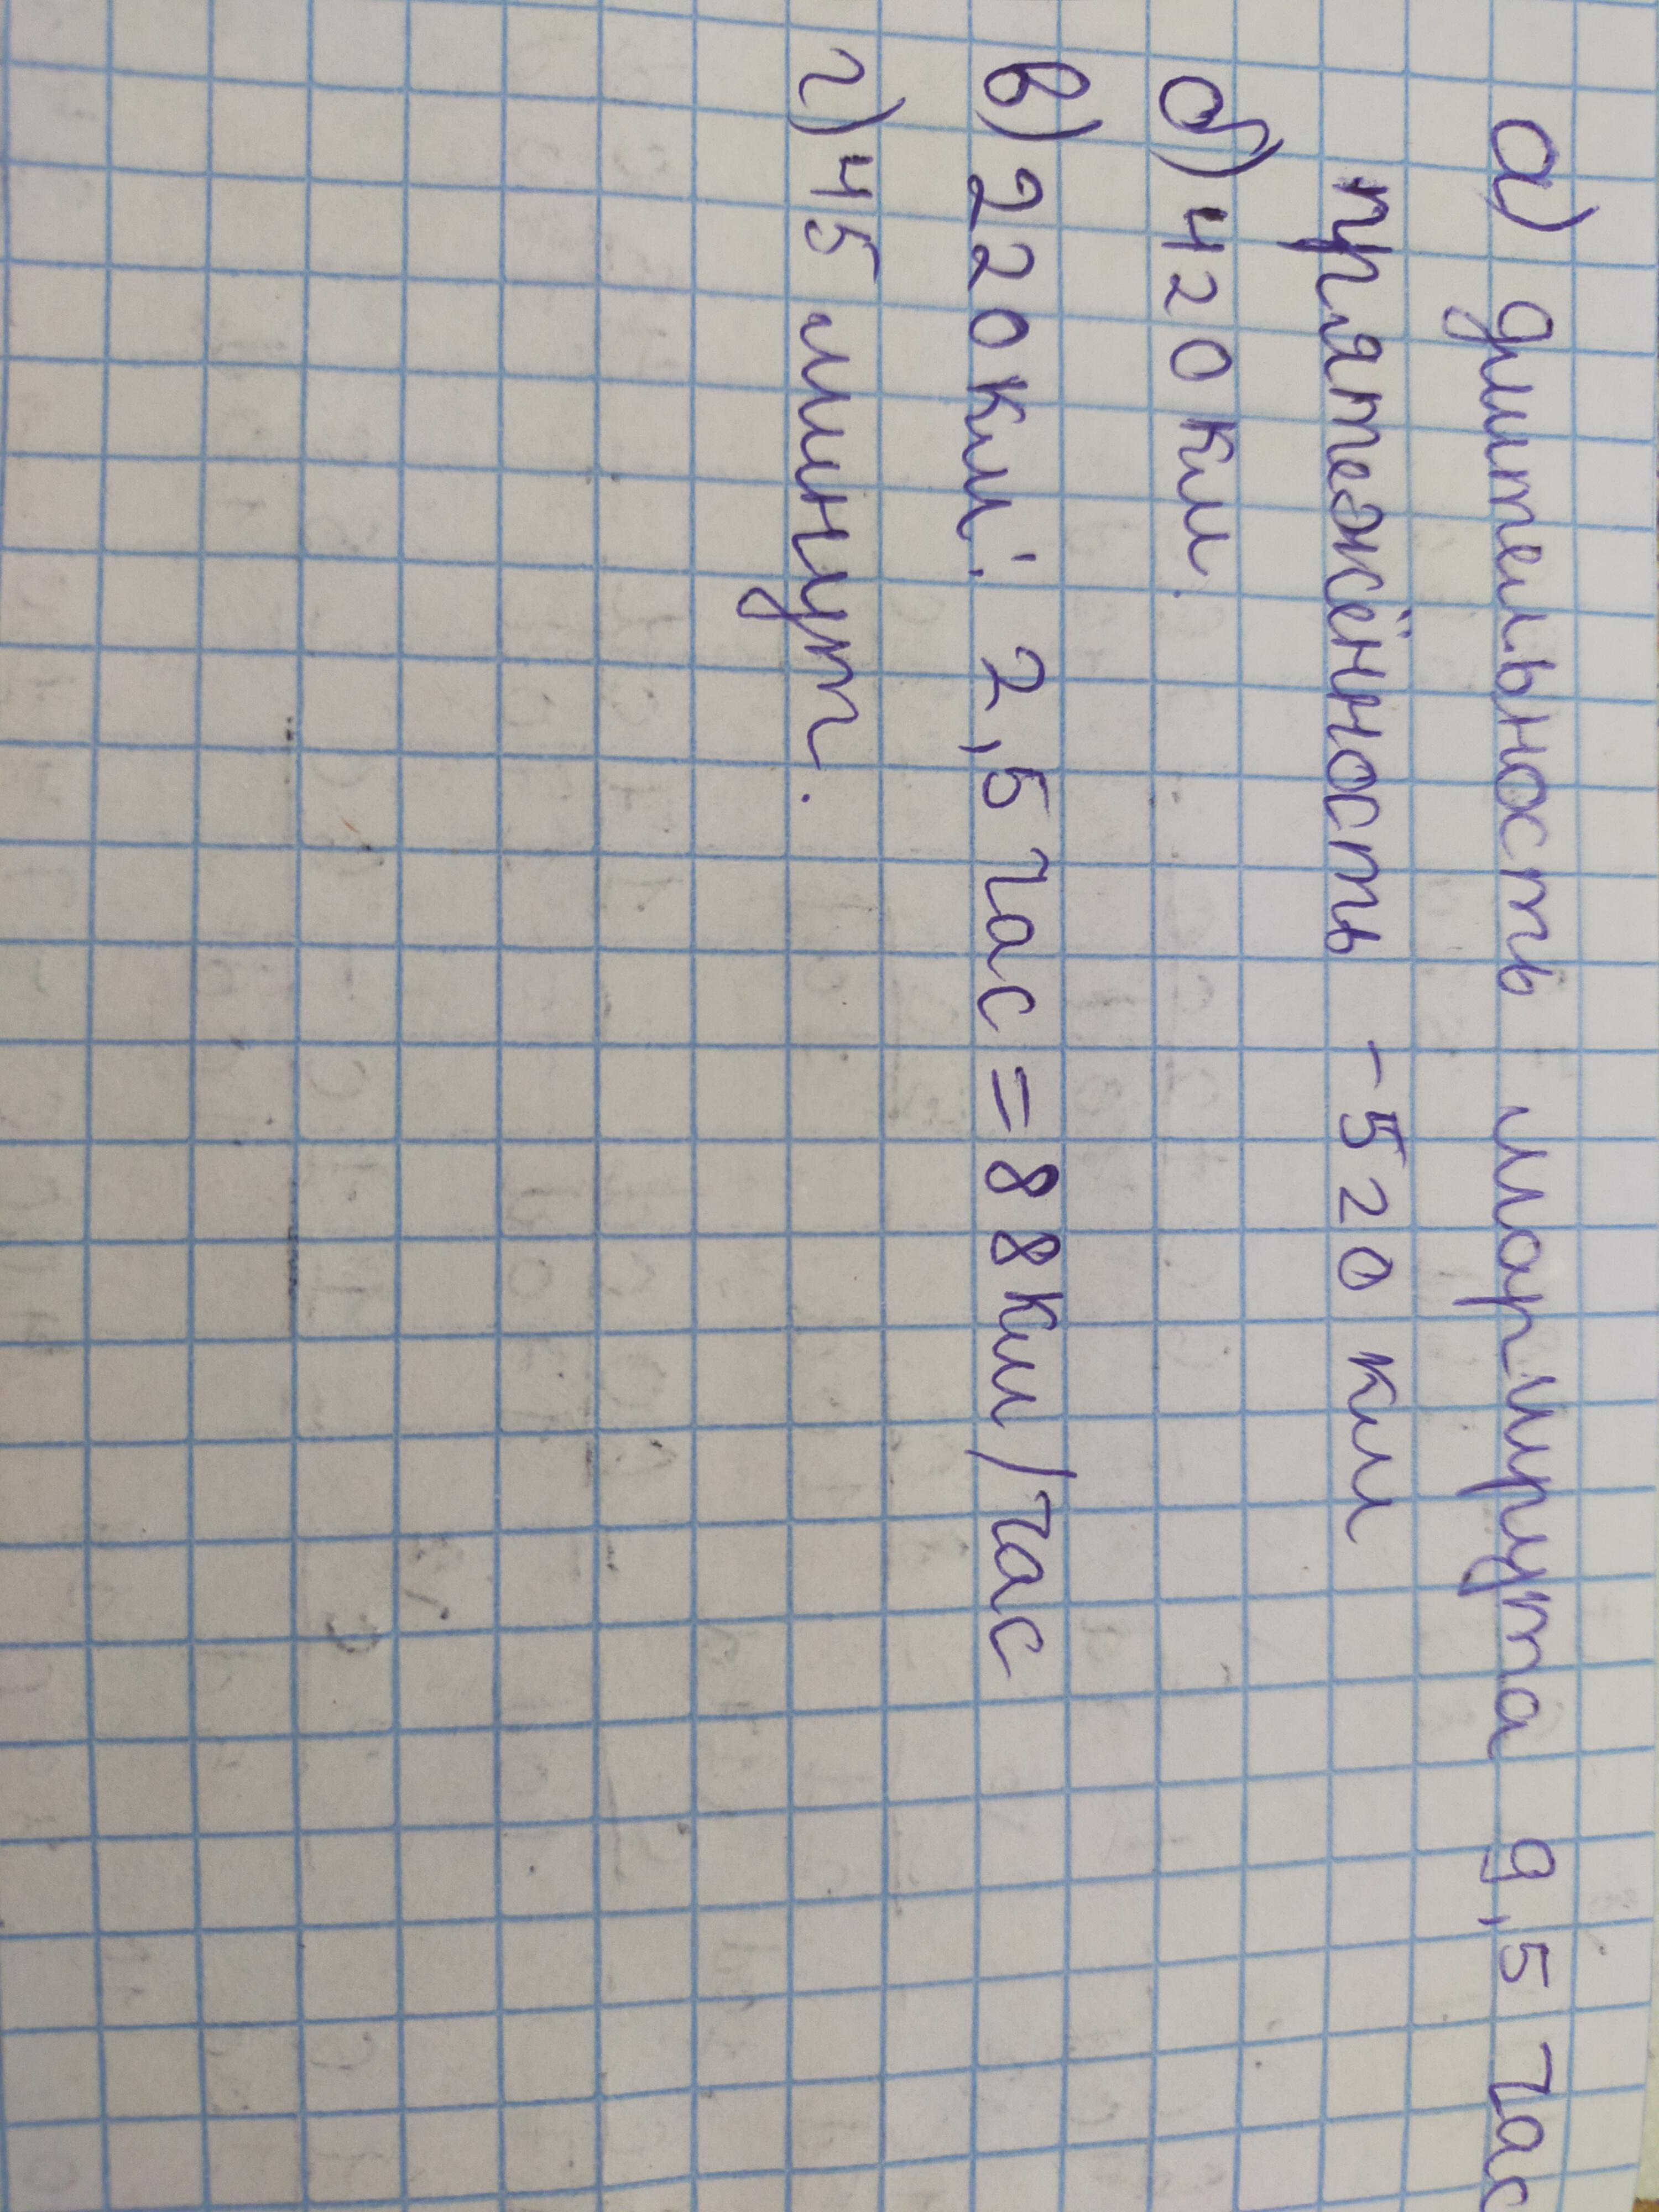 а) длительность маршрута 9,5 час
прятежённость - 520 км
б) 420 км.
в) 220 км : 2,5 час = 88 км/час
г) 45 минут.